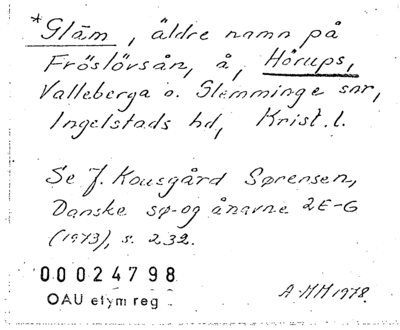 *Gläm, äldre namn på
Fröslövsån, å, Hörups,
Valleberga o. Glemminge snr,
Ingelstads hd, Krist. l.
Se J. Kousgård Sørensen,
Danske sø- og ånavne 2E-G
(1973), s. 232.
00024798
OAU etym reg
A-MH 1978.